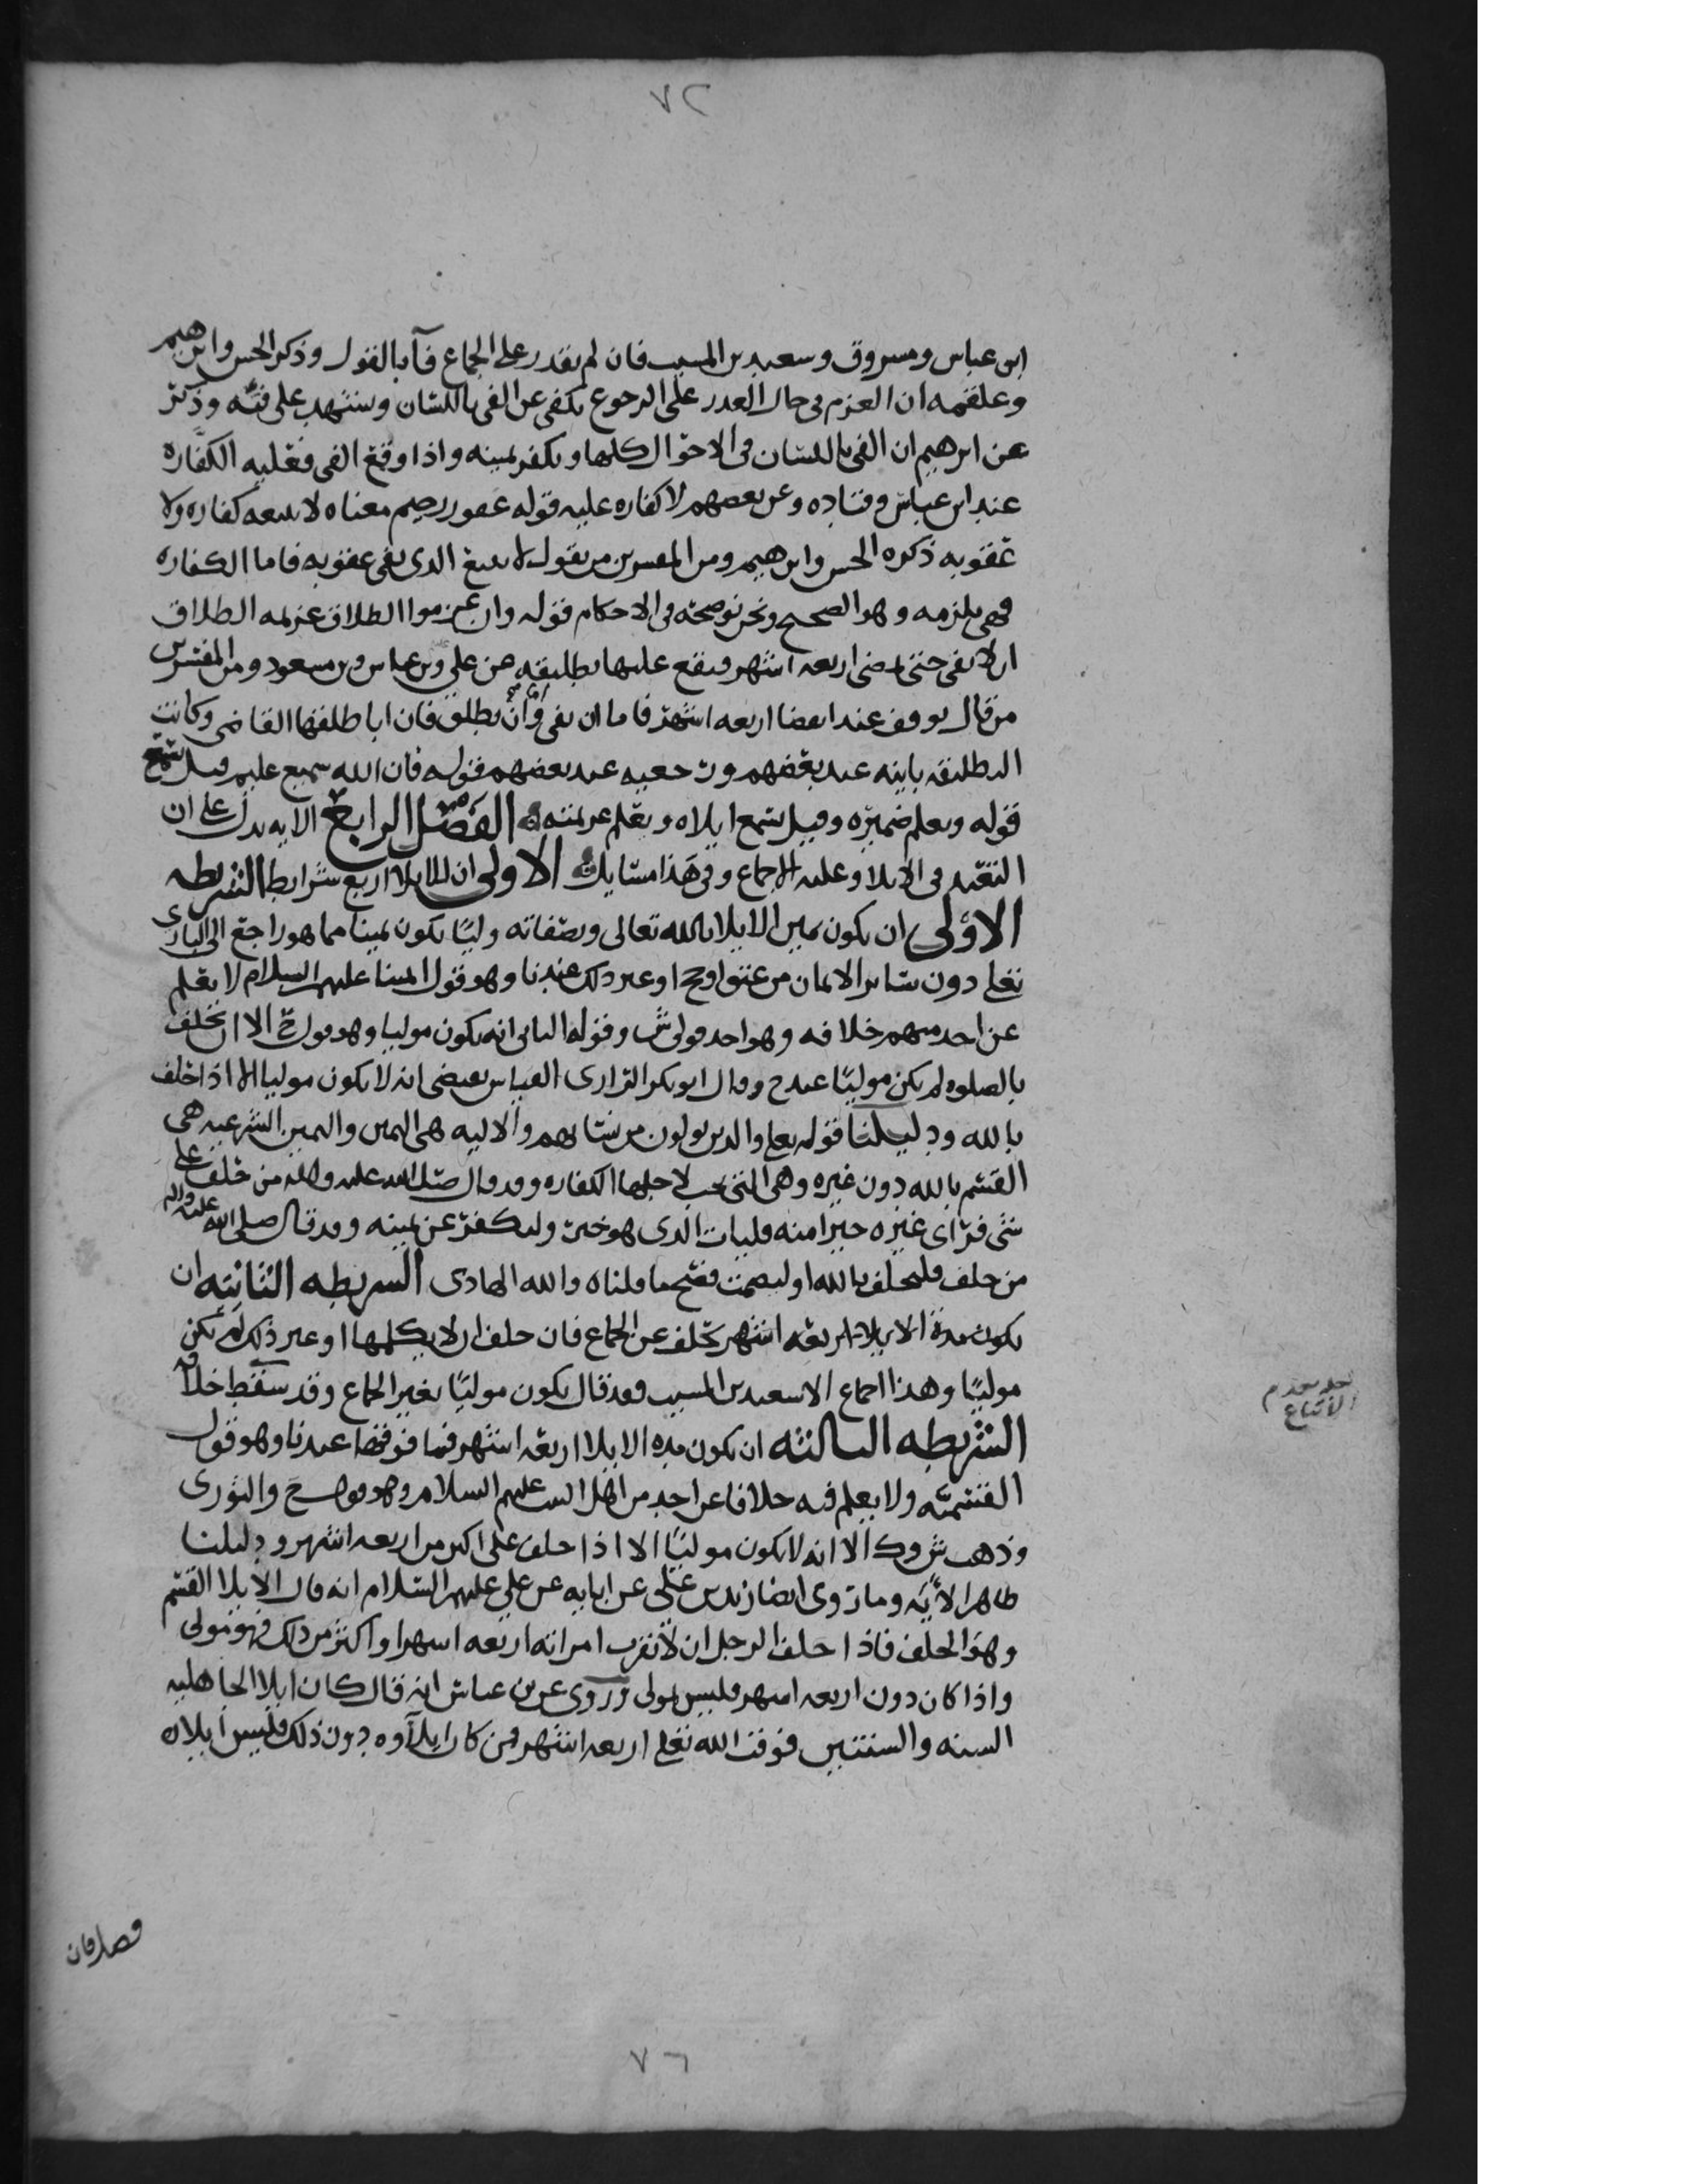 ٧٢
ابن عباس ومسروق وسعيد بن المسيب فان لم يقدر على الجماع فآء بالقول وذكر الحسن وابرهيم
وعلقمه ان العزم في حال العذر على الرجوع يكفي عن الفي باللسان ويشهد على فيئه وذكر
عن ابرهيم ان الفي باللسان في الاحوال كلها ويكفر يمينه واذا وقع الفي فعليه الكفاره
عند ابن عباس وقتاده وعن بعضهم لا كفاره عليه قوله غفور رحيم معناه لا يتبعه كفاره ولا
عقوبه ذكره الحسن وابرهيم ومن المفسرين من يقول لا يتبع الذي يفي عقوبه فاما الكفاره
فهي يلزمه وهو الصحيح ونحن نوضحه في الاحكام قوله وان عزموا الطلاق عزيمه الطلاق
ان لا يفي حتى تمضي اربعه اشهر فيقع عليها تطليقه عن علي وبن عباس وبن مسعود ومن المفسرين
من قال يوقف عند انقضا اربعه اشهر فاما ان يفي وان يطلق فان ابا طلقها القاضي وكانت
التطليقه باينه عند بعضهم ورجعيه عند بعضهم قوله فان الله سميع عليم قيل يسمع
قوله ويعلم ضميره وقيل يسمع ايلاه ويعلم عزيمته الفصل الرابع الايه تدل على ان
التعبد في الايلا وعليه الاجماع وفي هذا مسايل الاولى ان للايلا اربع شرايط الشريطه
الاولى ان يكون يمين الايلا بالله تعالى وبصفاته وليًا يكون يمينا مما هو راجع الى الباري
تعلى دون ساير الايمان من عتق او حج او غير ذلك عندنا وهو قول ايمتنا عليهم السلام لا يعلم
عن احد منهم خلافه وهو احد قولي ش وقوله الثاني انه يكون موليا وهو قول ح الا ان يحلف
بالصلوه لم يكن موليًا عند ح وقال ابو بكر الرازي القياس يقتضي انه لا يكون موليا الا اذا حلف
بالله ودليلنا قوله تعلى والذين يولون من نسايهم والاليه هي اليمين واليمين الشرعيه هي
القسم بالله دون غيره وهي التي يجب لاجلها الكفاره وقد قال صلى الله عليه واله من حلف على
شي فراى غيره خيرا منه فليات الذي هو خير وليكفر عن يمينه وقد قال صلى الله عليه واله
من حلف فليحلف بالله او ليصمت فصح ما قلناه والله الهادي الشريطه الثانيه ان
يكون مدة الايلا اربعه اشهر يحلف عن الجماع فان حلف ان لا يكلمها او غير ذلك لم يكن
موليًا وهذا اجماع الا سعيد بن المسيب فقد قال يكون موليًا بغير الجماع وقد سقط خلافه
الشريطه الثالثه ان يكون مده الايلا اربعه اشهر فما فوقها عندنا وهو قول
القسميّه ولا يعلم فيه خلافا عن احد من اهل البيت عليهم السلام وهو قول ح والثوري
وذهب ش وك الا انه لا يكون موليًا الا اذا حلف على اكثر من اربعه اشهر ودليلنا
ظاهر الآيه وما روى ايضا زيد بن علي عن ابايه عن علي عليهم السلام انه قال الايلا القسم
وهو الحلف فاذا حلف الرجل ان لا يقرب امراته اربعه اشهر او اكثر من ذلك فهو مولي
واذا كان دون اربعه اشهر فليس بمولى وروى عن بن عباس انه قال كان ايلا الجاهليه
السنه والسنتين فوقت الله تعلى اربعه اشهر فمن كان ايلآوه دون ذلك فليس ايلاه
الاجماع
فصل فان
٧٦